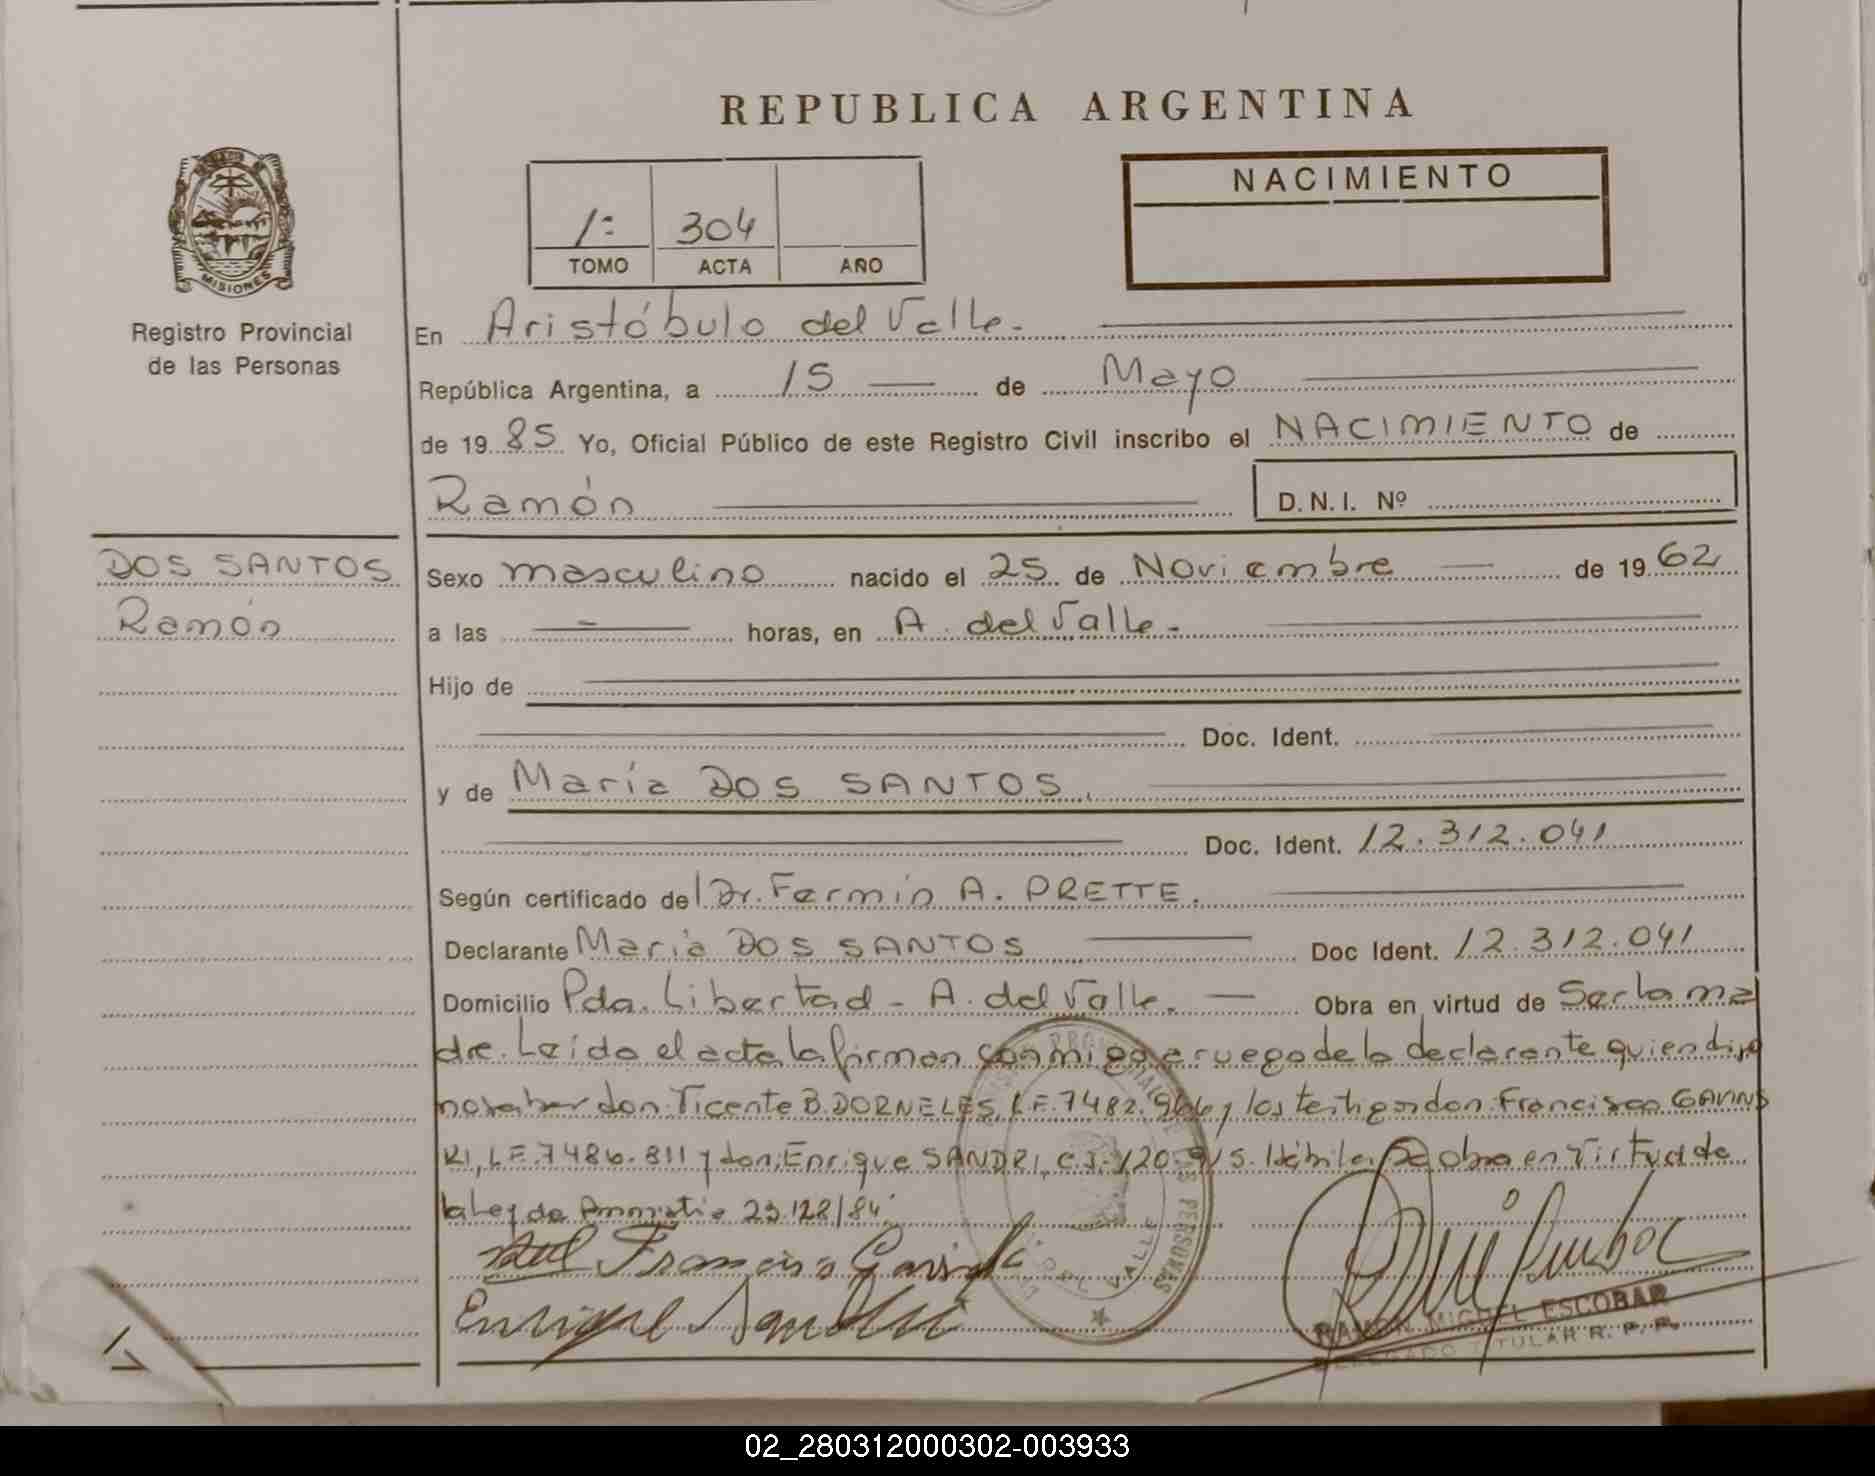 REPUBLICA ARGENTINA
NACIMIENTO
1: 304
TOMO ACTA AÑO
MISIONES
Registro Provincial
de las Personas
DOS SANTOS
Ramón
En Aristóbulo del Valle.
República Argentina, a 15 de Mayo
de 1985 Yo, Oficial Público de este Registro Civil inscribo el NACIMIENTO de
Ramón D.N.I. Nº
Sexo masculino nacido el 25 de Noviembre de 1962
a las - horas, en A. del Valle.
Hijo de
Doc. Ident.
y de María DOS SANTOS.
Doc. Ident. 12.312.041
Según certificado del Dr. Fermín A. PRETTE.
Declarante María DOS SANTOS Doc Ident. 12.312.041
Domicilio Pda. Libertad - A. del Valle. Obra en virtud de Ser la ma
dre. Leída el acta la firman conmigo a ruego de la declarante quien dijo
no saber don Vicente B. DORNELES, L.E. 7482.966 y los testigos don Francisco
RI, L.E. 7486.811 y don Enrique SANDRI, C.I. 120.915. Hábiles obra en Virtud de
la Ley de Amnistía 23.128/84
Francisco
Enrique Sandri
DEL VALLE
PERSONAS
RAMON MIGUEL ESCOBAR
DELEGADO TITULAR R. P. P.
02_280312000302-003933